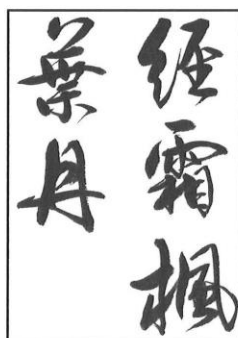 經霜楓
葉丹